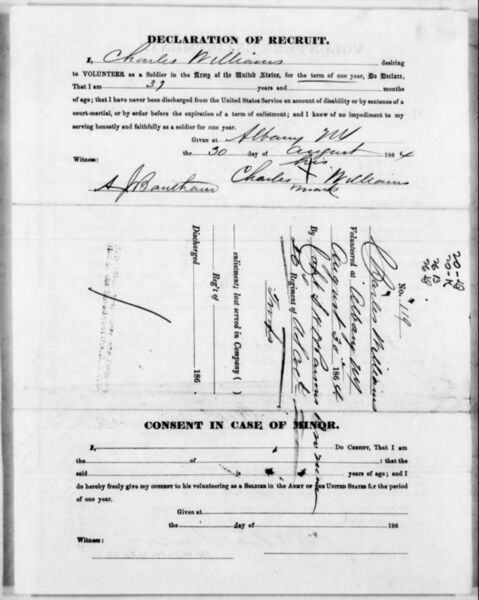 DECLARATION OF RECRUIT.
I, Charles Williams desiring
to VOLUNTEER as a Soldier in the Army of the United States, for the term of one year, Do Declare,
That I am 39 years and months
of age; that I have never been discharged from the United States Service on account of disability or by sentence of a
court-martial, or by order before the expiration of a term of enlistment; and I know of no impediment to my
serving honestly and faithfully as a soldier for one year.
Given at Albany NY
the 30 day of August 1864
Witness:
his
Charles X Williams
mark
No. 119
Charles Williams
Volunteered at Albany NY
August 30 1864
By Capt
Regiment of
enlistment; last served in Company ( )
Reg't of
Discharged 186 .
CONSENT IN CASE OF MINOR.
I, Do CERTIFY, That I am
the of : that the
said years of age; and I
do hereby freely give my CONSENT to his volunteering as a SOLDIER in the ARMY OF THE UNITED STATES for the period
of one year.
Given at
the day of 186
Witness: